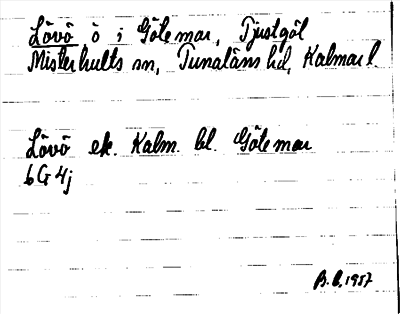 Lövö ö i Götemar, Tjustgöl
Misterhults sn, Tunaläns hd, Kalmar l.
Lövö ek. Kalm. bl. Götemar
6G 4j
B. L. 1957